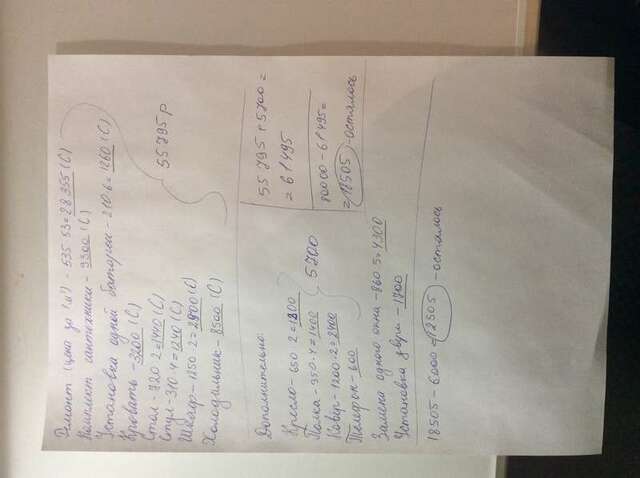 Ремонт (цена за 1м²) - 535·53=28355(С)
Комплект сантехники - 9300(С)
Установка одной батареи - 210·6=1260(С)
Кровать - 3200(С)
Стол - 720·2=1440(С)
Стул - 310·4=1240(С)
Шкаф - 1250·2=2500(С)
Холодильник - 8500(С)
55795р
Дополнительно:
Кресло - 650·2=1300
Полка - 350·4=1400
Ковёр - 1200·2=2400
Телефон - 600
5700
55795+5700=
=61495
80000-61495=
=18505 - осталось
Замена одного окна - 860·5=4300
Установка двери - 1700
18505-6000=12505 - осталось